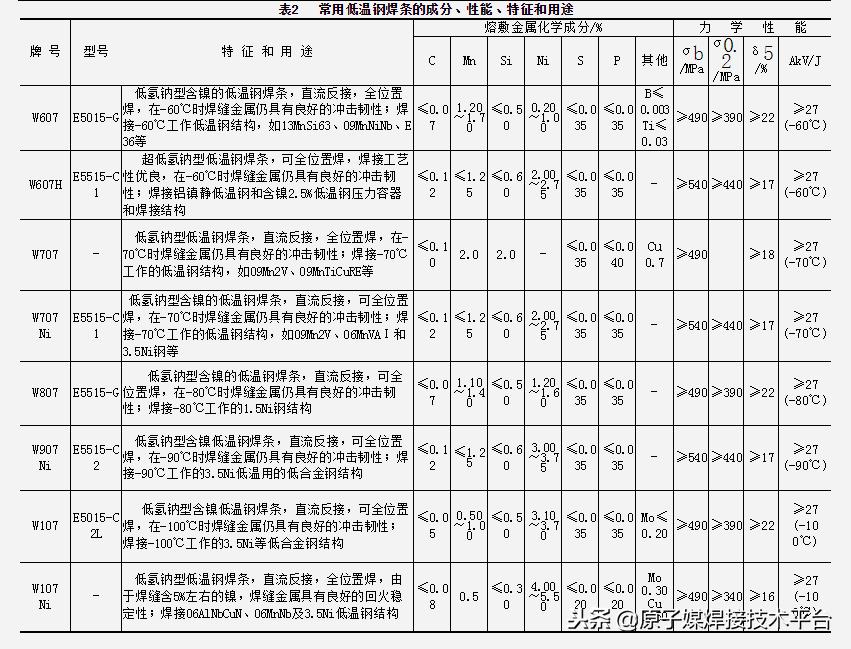 表2 常用低温钢焊条的成分、性能、特征和用途
牌 号 型号 特 征 和 用 途 熔敷金属化学成分/% 力 学 性 能
C Mn Si Ni S P 其他 σb/MPa σ0.2/MPa δ5/% AkV/J
W607 E5015-G 低氢钠型含镍的低温钢焊条，直流反接，全位置
焊，在-60℃时焊缝金属仍具有良好的冲击韧性；焊
接-60℃工作低温钢结构，如13MnSi63、09MnNiNb、E
36等
≤0.07 1.20~1.70 ≤0.50 0.20~1.00 ≤0.035 ≤0.035 B≤0.003 Ti≤0.03 ≥490 ≥390 ≥22 ≥27(-60℃)
W607H E5515-C1 超低氢钠型低温钢焊条，可全位置焊，焊接工艺
性优良，在-60℃时焊缝金属仍具有良好的冲击韧
性；焊接铝镇静低温钢和含镍2.5%低温钢压力容器
和焊接结构
≤0.12 ≤1.25 ≤0.60 2.00~2.75 ≤0.035 ≤0.035 - ≥540 ≥440 ≥17 ≥27(-60℃)
W707 - 低氢钠型低温钢焊条，直流反接，全位置焊，在-
70℃时焊缝金属仍具有良好的冲击韧性；焊接-70℃
工作的低温钢结构，如09Mn2V、09MnTiCuRE等
≤0.10 2.0 2.0 - ≤0.035 ≤0.040 Cu 0.7 ≥490 ≥18 ≥27(-70℃)
W707Ni E5515-C1 低氢钠型含镍的低温钢焊条，直流反接，可全位置
焊，在-70℃时焊缝金属仍具有良好的冲击韧性；焊
接-70℃工作的低温钢结构，如09Mn2V、06MnVAⅠ和
3.5Ni钢等
≤0.12 ≤1.25 ≤0.60 2.00~2.75 ≤0.035 ≤0.035 - ≥540 ≥440 ≥17 ≥27(-70℃)
W807 E5515-G 低氢钠型含镍的低温钢焊条，直流反接，可全
位置焊，在-80℃时焊缝金属仍具有良好的冲击韧
性；焊接-80℃工作的1.5Ni钢结构
≤0.07 1.10~1.40 ≤0.50 1.20~1.60 ≤0.035 ≤0.035 - ≥490 ≥390 ≥22 ≥27(-80℃)
W907Ni E5515-C2 低氢钠型含镍低温钢焊条，直流反接，可全位置
焊，在-90℃时焊缝金属仍具有良好的冲击韧性；焊
接-90℃工作的3.5Ni低温用的低合金钢结构
≤0.12 ≤1.25 ≤0.60 3.00~3.75 ≤0.035 ≤0.035 - ≥540 ≥440 ≥17 ≥27(-90℃)
W107 E5015-C2L 低氢钠型含镍低温钢焊条，直流反接，可全位置
焊，在-100℃时焊缝金属仍具有良好的冲击韧性；
焊接-100℃工作的3.5Ni等低合金钢结构
≤0.05 0.50~1.00 ≤0.50 3.10~3.70 ≤0.035 ≤0.035 Mo≤0.20 ≥490 ≥390 ≥22 ≥27(-100℃)
W107Ni - 低氢钠型低温钢焊条，直流反接，全位置焊，由
于焊缝含5%左右的镍，焊缝金属具有良好的回火稳
定性；焊接06AlNbCuN、06MnNb及3.5Ni低温钢结构
≤0.08 0.5 ≤0.30 4.00~5.50 ≤0.020 ≤0.020 Mo 0.30 Cu ≥490 ≥340 ≥16 ≥27(-10
头条 @原子媒焊接技术平台